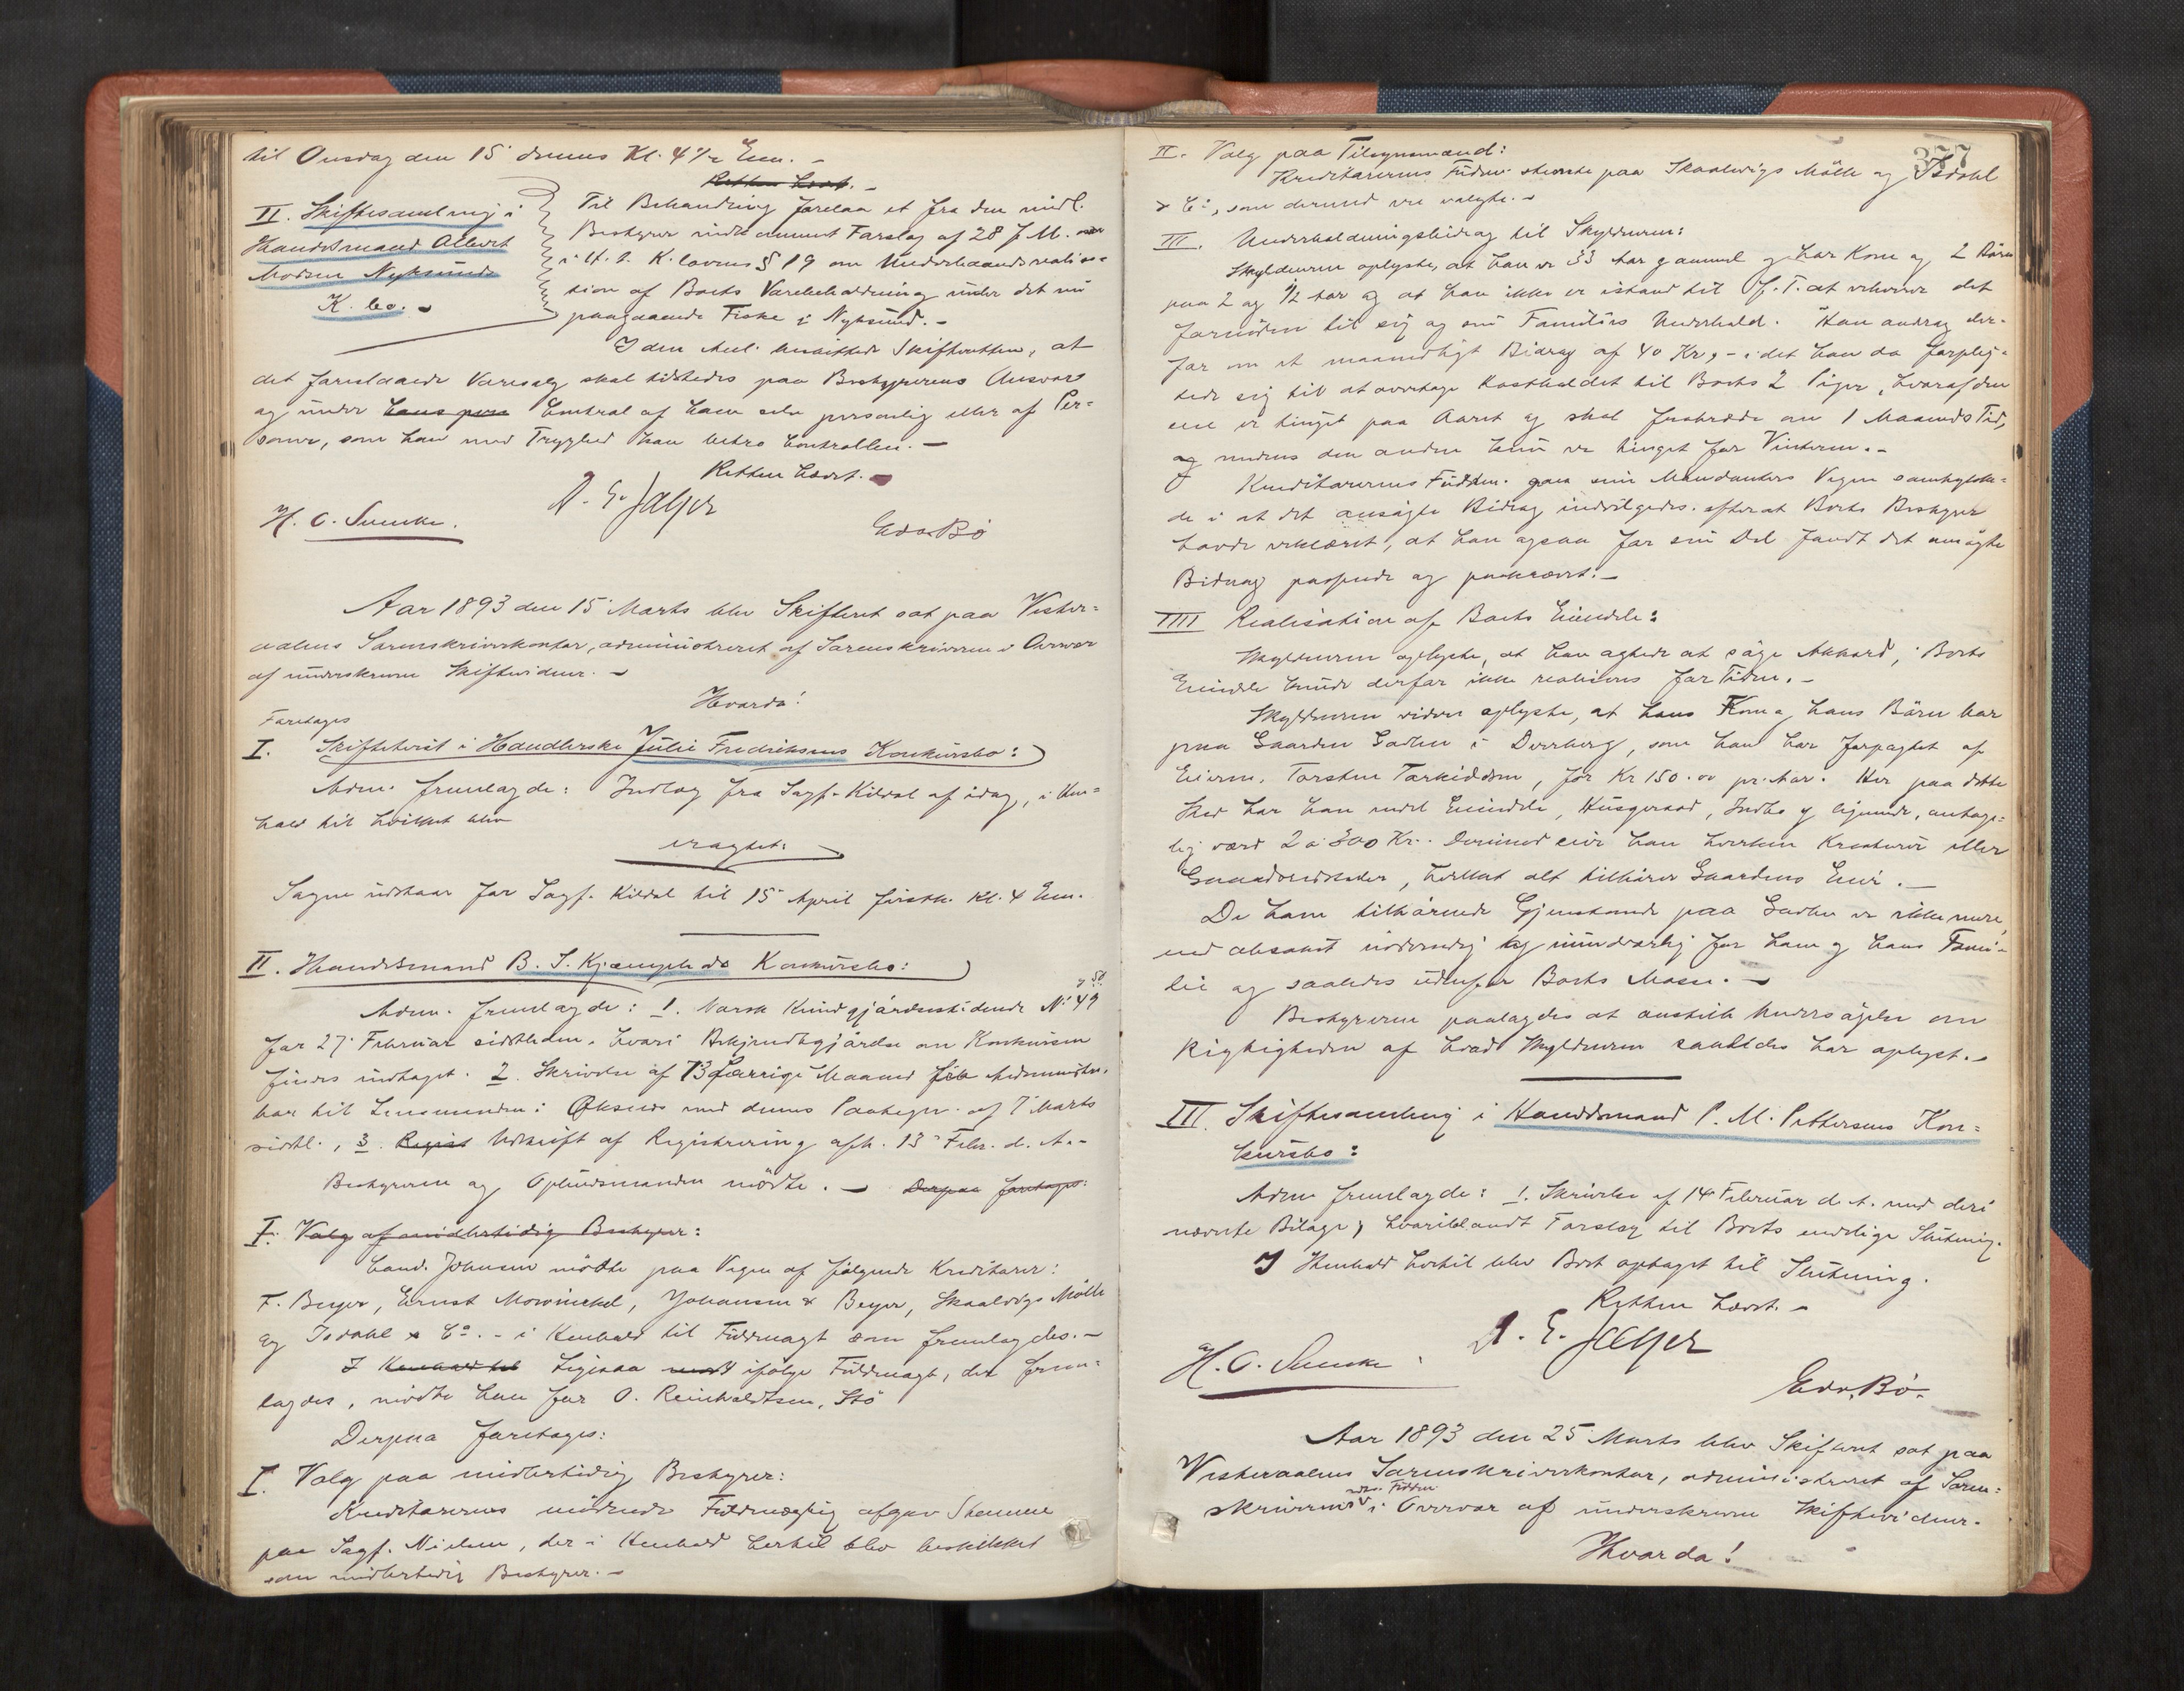 til Onsdag den 15 dennes Kl. 4 1/2 Em. -
Retten hævet. -
II. Skiftesamling i
Handelsmand Albert
Madsen Nyksunds
K. bo. -
Til Behandling forelaa et fra den midl.
Bestyrer indkommet Forslag af 28 f. M.
i H. t. K. lovens § 19 om Underhaandsrealisa=
tion af Boets Varebeholdning under det nu
paagaaende Fiske i Nyksund. -
I den Anl. besluttede Skifteretten, at
det foreslaaede Varesalg skal tilstedes paa Bestyrerens Ansvar
og under hans pers Control af ham selv personlig eller af Per=
soner, som han med Tryghed kan betro Controllen. -
Retten hævet. -
H. C. Suncke.
A. E. Jæger
Edv. Bö
Aar 1893 den 15 Marts blev Skifteret sat paa Vester=
aalens Sorenskriverkontor, administreret af Sorenskriveren i Overvær
af underskrevne Skiftevidner. -
Hvorda!
Foretoges
I. Skifteret i Handlerske Julie Fredriksens Konkursbo:
Adm. fremlagde: Indlæg fra Sagf. Kildal af idag, i Hen=
hold til hvilket blev
eragtet:
Sagen udstaar for Sagf. Kildal til 15 April förstk. Kl. 4 Em.
II. Handelsmand B. J. Kjæmpeheds Konkursbo:
Adm. fremlagde: 1. Norsk Kundgjörelsestidende No 49 og 52
for 27 Februar sidstleden, hvori Bekjendtgjörelse om Konkursen
findes indtaget. 2. Skrivelse af 13 forrige Maaned fra Administra.
her til Lensmanden i Öksnes med dennes Paategn. af 7 Marts
sidstl., 3. Regist Udskrift af Registrering afh. 13 Febr. d. A. -
Bestyreren og Opbudsmanden mödte. - Derpaa foretoges:
I. Valg af midlertidig Bestyrer:
Cand. Johnsen mödte paa Vegne af fölgende Kreditorer:
F. Beyer, Ernst Mowinckel, Johansen & Beyer, Skaalvigs Mölle
og Isdahl & Co. - i Henhold til Fuldmagt som fremlagdes. -
I Henhold til Ligesaa ifölge Fuldmagt, der frem=
lagdes, mödte han for O. Reinholdtsen, Stö
Derpaa foretoges:
I. Valg paa midlertidig Bestyrer:
Kreditorernes mödende Fuldmægtig afgav Stemme
paa Sagf. Nielsen, der i Henhold hertil blev beskikket
som midlertidig Bestyrer. -
377
II. Valg paa Tilsynsmænd:
Kreditorernes Fuldm. stemte paa Skaalvigs Mölle og Isdahl
& Co, som dermed ere valgte. -
III. Underholdningsbidrag til Skyldneren:
Skyldneren oplyste, at han er 33 Aar gammel og har Kone og 2 Börn
paa 2 og 1/2 Aar og at han ikke er istand til f. T. at erhverve det
fornödne til sig og sin Families Underhold. Han androg der=
for om et maanedligt Bidrag af 40 Kr, - idet han da forplig=
tede sig til at overtage Kostholdet til Boets 2 Piger, hvoraf den
ene er tinget paa Aaret og skal fratræde om 1 Maaneds Tid,
og medens den anden kun er tinget for Vinteren. -
Kreditorernes Fuldm. paa sine Mandanters Vegne samtykke=
de i at det ansögte Bidrag indvilgedes. efterat Boets Bestyrer
havde erklæret, at han ogsaa for sin Del fandt det ansögte
Bidrag passende og paakrævet. -
IIII Realisation af Boets Eiendele:
Skyldneren oplyste, at han agtede at söge Akkord, Boets
Eiendele kunde derfor ikke realiseres for Tiden. -
Skyldneren videre oplyste, at hans Kone og hans Börn bor
paa Gaarden i Dverberg, som han har forpagtet af
Eieren, Torsten Torkildsen, for Kr 150.00 pr. Aar. Her paa dette
Sted har han endel Eiendele, Husgeraad, Indbo og lignende, antage=
lig værd 2 à 300 Kr. Derimod eier han hverken Kreaturer eller
Gaardsredskaber, hvilket alt tilhörer Gaardens Eier. -
De ham tilhörende Gjenstande paa er ikke mere
end absolut nödvendig og uundværlig for ham og hans Fami=
lie og saaledes udenfor Boets Masse. -
Bestyreren paalagdes at anstille Undersögelse om
Rigtigheden af hvad Skyldneren saaledes har oplyst. -
III. Skiftesamling i Handelsmand P. M. Pettersens Kon=
kursbo:
Adm fremlagde: 1. Skrivelse af 14 Februar d. A. med deri
nævnte Bilage, hvoriblandt Forslag til Boets endelige Slutning.
I Henhold hertil blev Boet optaget til Slutning.
Retten hævet. -
H. C. Suncke
A. E. Jæger
Edv. Bö.
Aar 1893 den 25 Marts blev Skifteret sat paa
Vesteraalens Sorenskriverkontor, administreret af Soren=
skriverens Fuldm i Overvær af underskrevne Skiftevidner.
Hvorda!